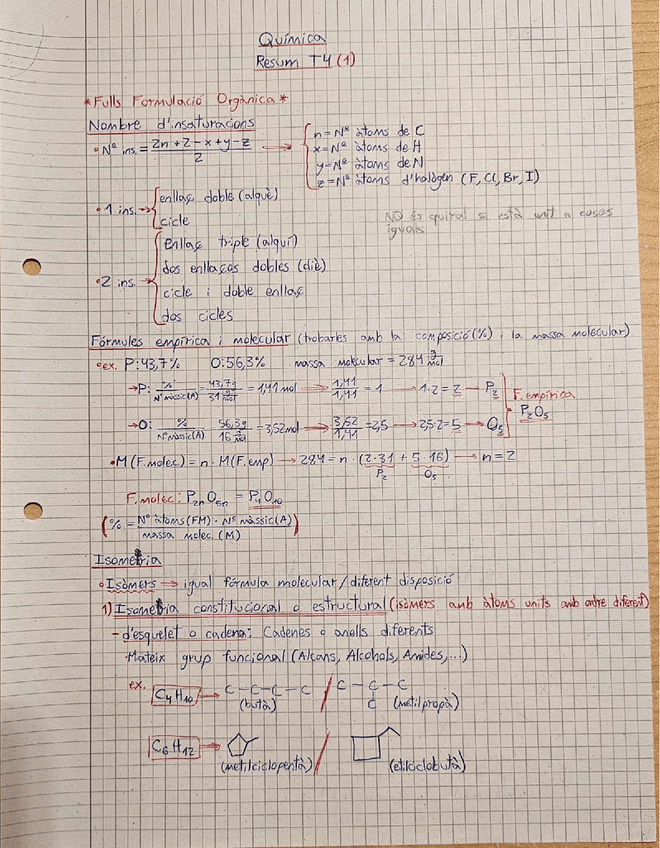 Química
Resum T4 (1)
*Fulls Formulació Orgànica*
Nombre d'insaturacions
•Nº ins. = 2n+2-x+y-z / 2 → { n=Nº àtoms de C
x=Nº àtoms de H
y=Nº àtoms de N
z=Nº àtoms d'halògen (F, Cl, Br, I)
•1 ins. → { enllaç doble (alquè)
cicle
NO és quiral si està unit a coses
iguals
•2 ins. → { enllaç triple (alquí)
dos enllaços dobles (diè)
cicle i doble enllaç
dos cicles
Fórmules empírica i molecular (trobarles amb la composició(%) i la massa molecular)
•ex. P:43,7% O:56,3% massa molecular = 284 g/mol
→P: %/Nº màssic(A) = 43,7g / 31 g/mol = 1,41 mol → 1,41/1,41 = 1 → 1·2=2 → P₂
F. empírica
P₂O₅
→O: %/Nº màssic(A) = 56,3g / 16 g/mol = 3,52 mol → 3,52/1,41 = 2,5 → 2,5·2=5 → O₅
•M(F.molec) = n · M(F.emp) → 284 = n · (2·31 + 5·16) → n=2
P₂ O₅
F. molec: P₂ₙO₅ₙ = P₄O₁₀
(% = Nº àtoms(FM) · Nº màssic(A) / massa molec. (M))
Isomeria
•Isòmers → igual fórmula molecular/diferent disposició
1) Isomeria constitucional o estructural (isòmers amb àtoms units amb ordre diferent)
- d'esquelet o cadena: Cadenes o anells diferents
·Mateix grup funcional (Alcans, Alcohols, Amides,...)
ex. C₄H₁₀ → C-C-C-C / C-C-C
C
(butà) (metilpropà)
C₆H₁₂ →
(metilciclopentà) / (etilciclobutà)